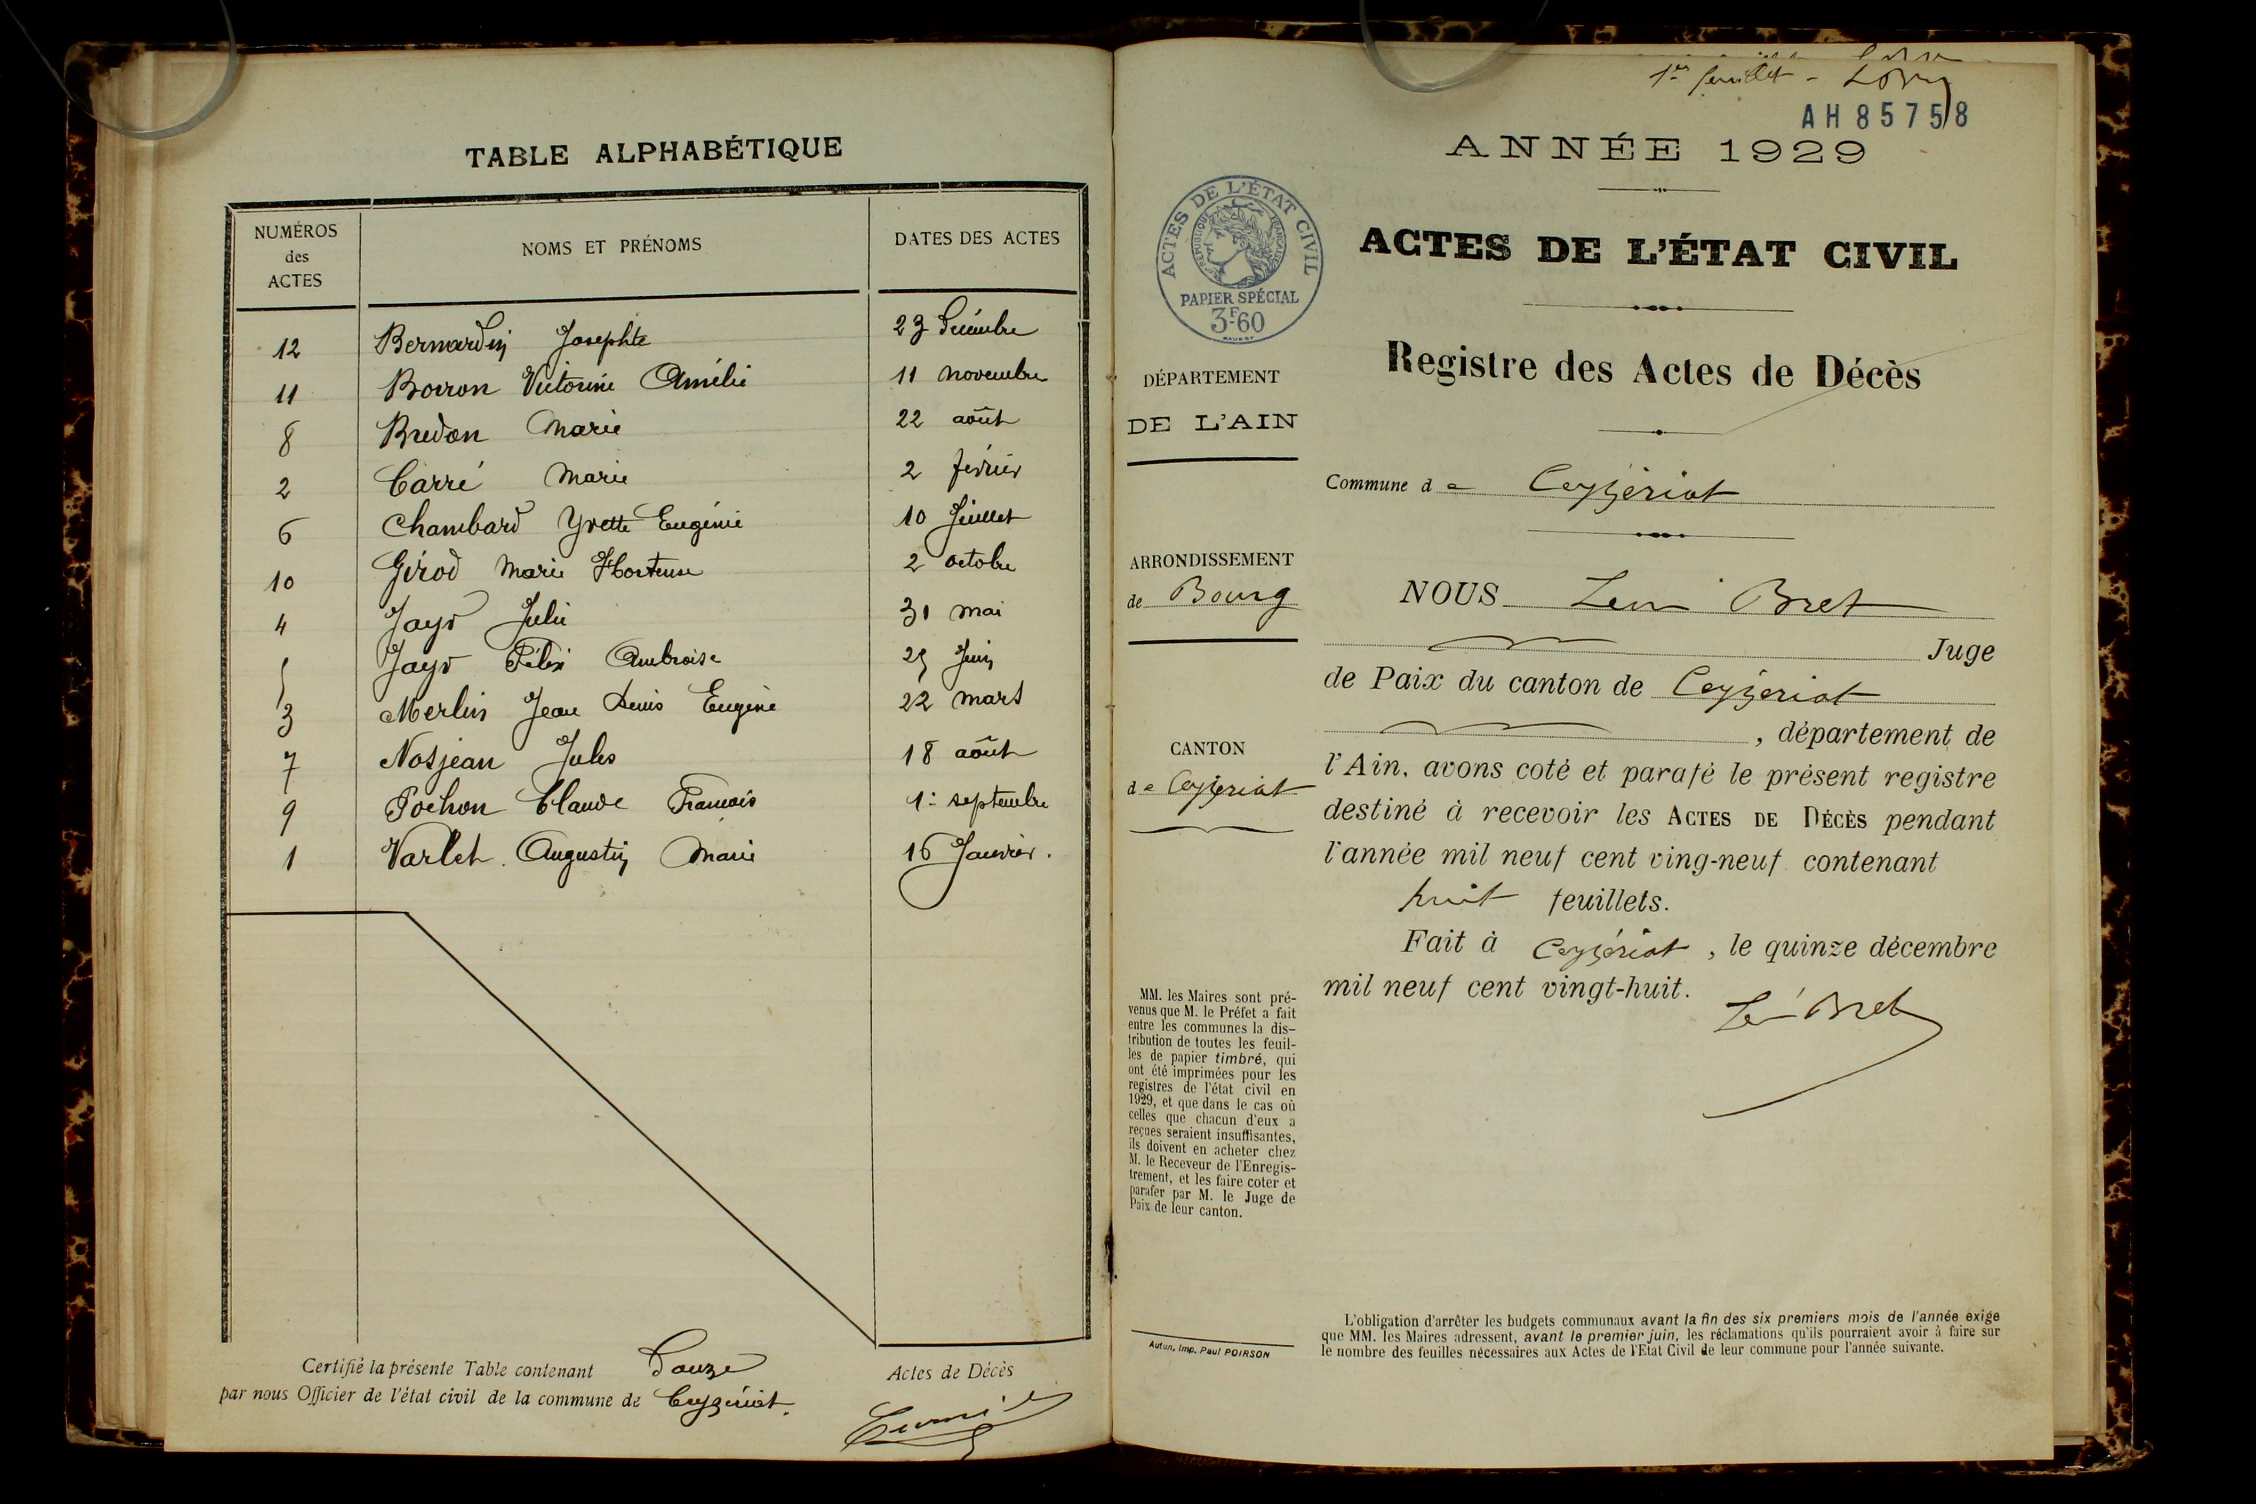 TABLE ALPHABÉTIQUE
NUMÉROS des ACTES NOMS ET PRÉNOMS DATES DES ACTES
12 Bernardin Josephte 23 Décembre
11 Boiron Victorine Amélie 11 novembre
8 Bredon Marie 22 août
2 Carré Marie 2 février
6 Chambard Yvette Eugénie 10 Juillet
10 Girod Marie Hortense 2 octobre
4 Jayr Julie 31 mai
5 Jayr Félix Ambroise 25 Juin
3 Merlin Jean Denis Eugène 22 mars
7 Nosjean Jules 18 août
9 Pochon Claude François 1er septembre
1 Varlet Augustin Marie 16 Janvier.
Certifié la présente Table contenant Douze Actes de Décès
par nous Officier de l'état civil de la commune de Ceyzériat.
1er feuillet -
AH 85758
ANNÉE 1929
ACTES DE L'ÉTAT CIVIL
RÉPUBLIQUE FRANÇAISE
PAPIER SPÉCIAL
3F60
ACTES DE L'ÉTAT CIVIL
Registre des Actes de Décès
DÉPARTEMENT
DE L'AIN
ARRONDISSEMENT
de Bourg
CANTON
de Ceyzériat
MM. les Maires sont pré-
venus que M. le Préfet a fait
entre les communes la dis-
tribution de toutes les feuil-
les de papier timbré, qui
ont été imprimées pour les
registres de l'état civil en
1929, et que dans le cas où
celles que chacun d'eux a
reçues seraient insuffisantes,
ils doivent en acheter chez
M. le Receveur de l'Enregis-
trement, et les faire coter et
parafer par M. le Juge de
Paix de leur canton.
Autun, Imp. Paul POIRSON
Commune de Ceyzériat
NOUS Léon Bret
Juge
de Paix du canton de Ceyzeriat
, département de
l'Ain, avons coté et parafé le présent registre
destiné à recevoir les ACTES DE DÉCÈS pendant
l'année mil neuf cent ving-neuf contenant
huit feuillets.
Fait à Ceyzériat, le quinze décembre
mil neuf cent vingt-huit.
Léon Bret
L'obligation d'arrêter les budgets communaux avant la fin des six premiers mois de l'année exige
que MM. les Maires adressent, avant le premier juin, les réclamations qu'ils pourraient avoir à faire sur
le nombre des feuilles nécessaires aux Actes de l'Etat Civil de leur commune pour l'année suivante.